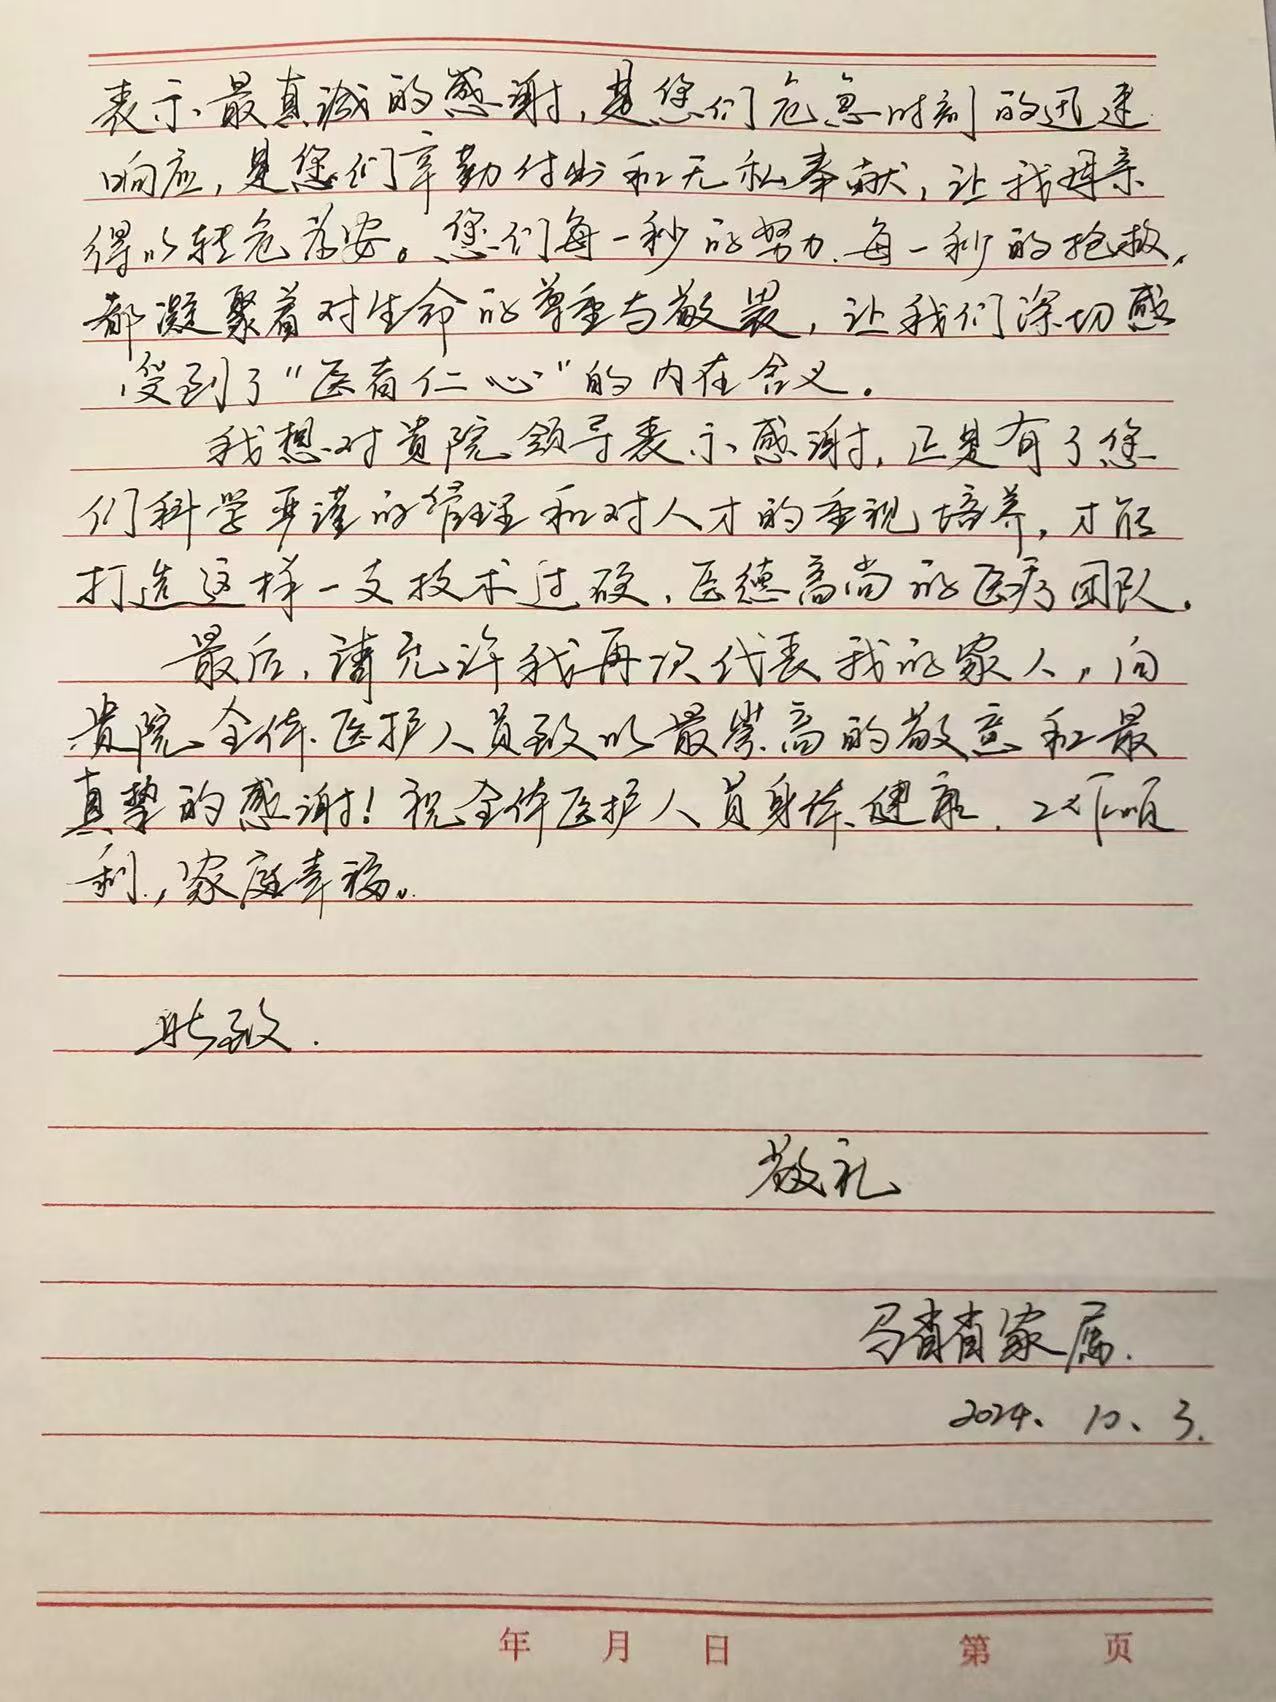 表示最真诚的感谢，是您们危急时刻的迅速
响应，是您们辛勤付出和无私奉献，让我母亲
得以转危为安。您们每一秒的努力、每一秒的抢救，
都凝聚着对生命的尊重与敬畏，让我们深切感
受到了“医者仁心”的内在含义。
我想对贵院领导表示感谢，正是有了您
们科学严谨的管理和对人才的重视培养，才能
打造这样一支技术过硬、医德高尚的医疗团队。
最后，请允许我再次代表我的家人，向
贵院全体医护人员致以最崇高的敬意和最
真挚的感谢！祝全体医护人员身体健康、工作顺
利，家庭幸福。
此致．
敬礼
马肖肖家属．
2024、10、3．
年 月 日 第 页